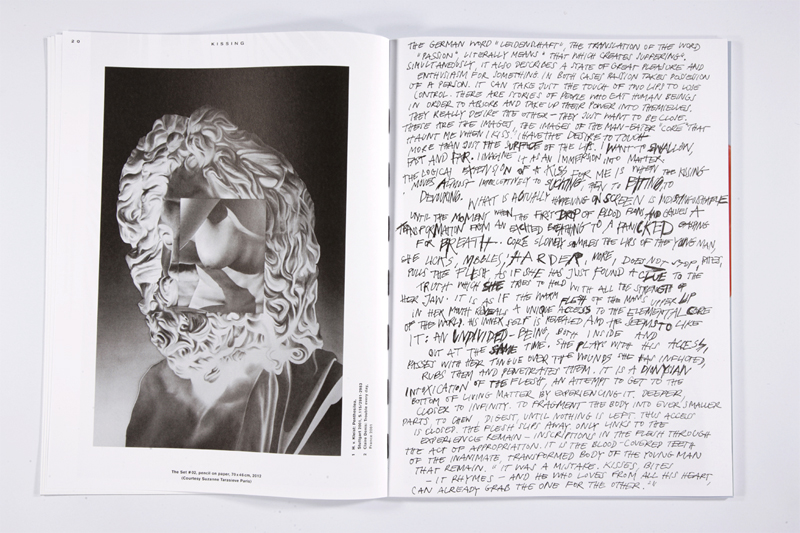 28
KISSING
The Set #02, pencil on paper, 70×46cm, 2010
(Courtesy Suzanne Tarasieve Paris)
THE GERMAN WORD "LEIDENSCHAFT", THE TRANSLATION OF THE WORD
"PASSION", LITERALLY MEANS "THAT WHICH CREATES SUFFERING".
SIMULTANEOUSLY, IT ALSO DESCRIBES A STATE OF GREAT PLEASURE AND
ENTHUSIASM FOR SOMETHING. IN BOTH CASES PASSION TAKES POSSESSION
OF A PERSON. IT CAN TAKE JUST THE TOUCH OF TWO LIPS TO LOSE
CONTROL. THERE ARE STORIES OF PEOPLE WHO EAT HUMAN BEINGS
IN ORDER TO ABSORB AND TAKE UP THEIR POWER INTO THEMSELVES.
THEY REALLY DESIRE THE OTHER – THEY JUST WANT TO BE CLOSE.
THESE ARE THE IMAGES, THE IMAGES OF THE MAN-EATER "CORE" THAT
HAUNT ME WHEN I KISS. I HAVE THE DESIRE TO TOUCH
MORE THAN JUST THE SURFACE OF THE LIPS. I WANT TO SWALLOW,
EAT AND I IMAGINE IT AS AN IMMERSION INTO MATTER.
THE LOGICAL EXTENSION OF A KISS FOR ME IS WHEN THE KISSING
MOVES ALMOST IMPERCEPTIVELY TO SUCKING, THEN TO BITING, TO
DEVOURING. WHAT IS ACTUALLY HAPPENING ON SCREEN IS INDISTINGUISHABLE
UNTIL THE MOMENT WHEN THE FIRST DROP OF BLOOD FOAMS AND CAUSES A
TRANSFORMATION FROM AN EXCITED BREATHING TO A PANICKED GASPING
FOR BREATH. CORE SLOWLY NIBBLES THE LIPS OF THE YOUNG MAN,
SHE LICKS, NIBBLES, HARDER, MORE, DOES NOT STOP, BITES,
PULLS THE FLESH, AS IF SHE HAS JUST FOUND A CLUE TO THE
TRUTH WHICH SHE TRIES TO HOLD WITH ALL THE STRENGTH OF
HER JAW. IT IS AS IF THE WARM FLESH OF THE MAN'S UPPER LIP
IN HER MOUTH REVEALS A UNIQUE ACCESS TO THE ELEMENTAL CORE
OF THE WORLD. HIS INNER SELF IS REVEALED AND HE SEEMS TO LIKE
IT: AN UNDIVIDED – BEING, BOTH INSIDE AND
OUT AT THE SAME TIME. SHE PLAYS WITH HIS ACCESS,
PASSES WITH HER TONGUE OVER THE WOUNDS SHE HAS INFLICTED,
RUBS THEM AND PENETRATES THEM. IT IS A DIONYSIAN
INTOXICATION OF THE FLESH, AN ATTEMPT TO GET TO THE
BOTTOM OF LIVING MATTER BY EXPERIENCING IT, DEEPER,
CLOSER TO INFINITY. TO FRAGMENT THE BODY INTO EVER SMALLER
PARTS TO CHEW, DIGEST, UNTIL NOTHING IS LEFT. THIS ACCESS
IS CLOSED. THE FLESH SLIPS AWAY. ONLY LINKS TO THE
EXPERIENCE REMAIN – INSCRIPTIONS IN THE FLESH THROUGH
THE ACT OF APPROPRIATION. IT IS THE BLOOD-COVERED TEETH
OF THE INANIMATE, TRANSFORMED BODY OF THE YOUNG MAN
THAT REMAIN. "IT WAS A MISTAKE. KISSES, BITES
– IT RHYMES – AND HE WHO LOVES FROM ALL HIS HEART,
CAN ALREADY GRAB THE ONE FOR THE OTHER."